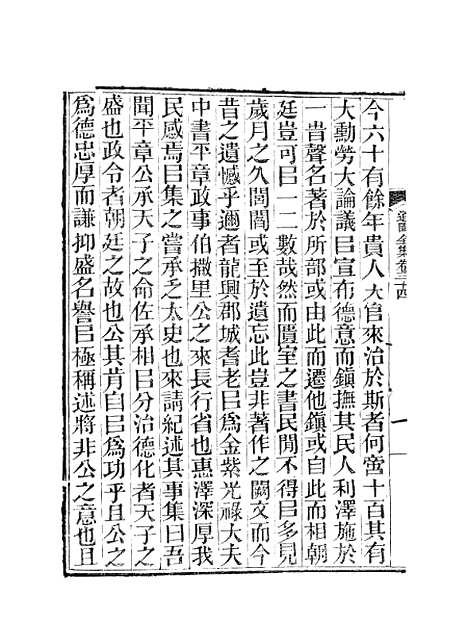 今六十有餘年貴人大官來治於斯者何啻十百其有
大勳勞大論議㠯宣布德意而鎮撫其民人利澤施於
一昔聲名著於所部或由此而遷他鎮或自此而相朝
廷豈可㠯一二數哉然而匱室之書民閒不得㠯多見
歲月之久閭閻或至於遺忘此豈非著作之闕文而今
昔之遺憾乎邇者龍興郡城耆老㠯爲金紫光祿大夫
中書平章政事伯撒里公之來長行省也惠澤深厚我
民感焉㠯集之嘗承乏太史也來請紀述其事集曰吾
聞平章公承天子之命佐丞相㠯分治德化者天子之
盛也政令者朝廷之故也公其肯自㠯爲功乎且公之
爲德忠厚而謙抑盛名譽㠯極稱述將非公之意也且